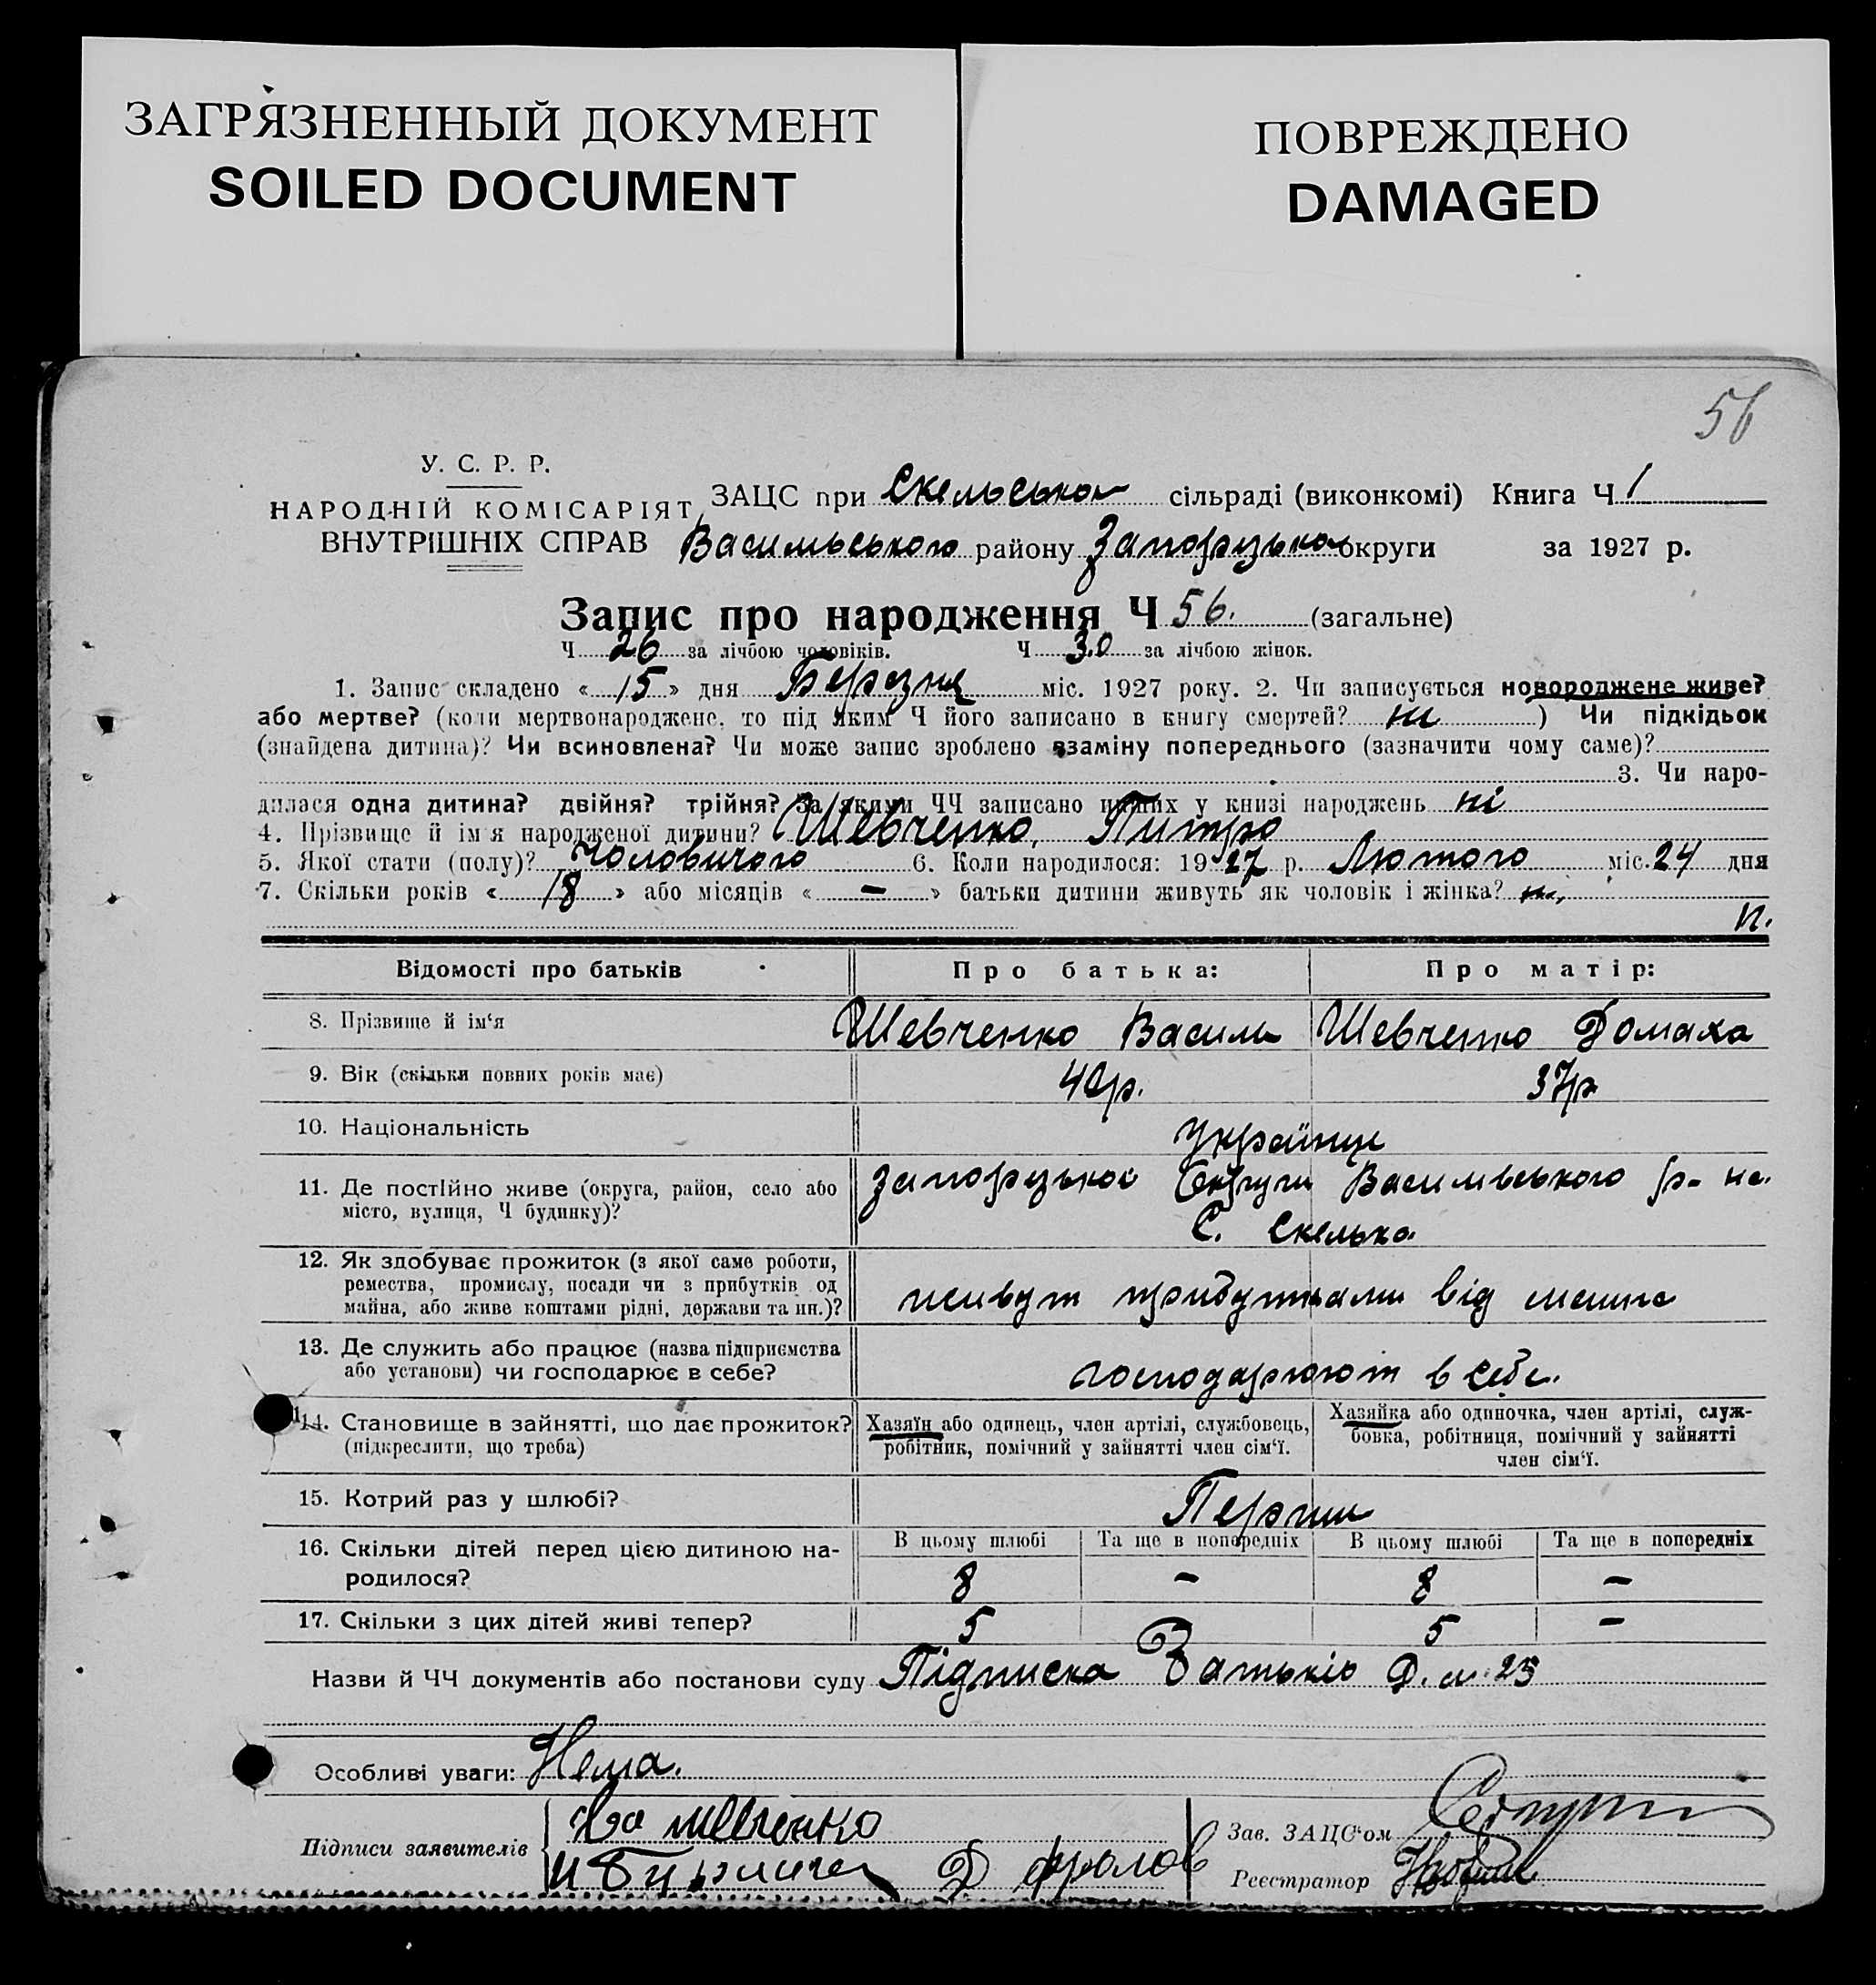 ЗАГРЯЗНЕННЫЙ ДОКУМЕНТ
SOILED DOCUMENT
ПОВРЕЖДЕНО
DAMAGED
56
У. С. Р. Р.
НАРОДНІЙ КОМІСАРІЯТ
ВНУТРІШНІХ СПРАВ
ЗАЦС при Скельськой сільраді (виконкомі) Книга Ч 1
Васильського району Запорізької округи за 1927 р.
Запис про народження Ч 56. (загальне)
Ч 26 за лічбою чоловіків. Ч 30 за лічбою жінок.
1. Запис складено « 15 » дня Березня міс. 1927 року. 2. Чи записується новороджене живе?
або мертве? (коли мертвонароджене, то під яким Ч його записано в книгу смертей? ні ) Чи підкідьок
(знайдена дитина)? Чи всиновлена? Чи може запис зроблено взаміну попереднього (зазначити чому саме)?
3. Чи наро-
дилася одна дитина? двійня? трійня? За якими ЧЧ записано инших у книзі народжень ні
4. Прізвище й ім'я народженої дитини? Шевченко, Питро
5. Якої стати (полу)? Чоловичого 6. Коли народилося: 1927 р. Лютого міс. 24 дня
7. Скільки років « 18 » або місяців « – » батьки дитини живуть як чоловік і жінка?
Відомості про батьків Про батька: Про матір:
8. Прізвище й ім'я Шевченко Васили Шевченко Домаха
9. Вік (скільки повних років має) 40р. 37р
10. Національність Українци
11. Де постійно живе (округа, район, село або
місто, вулиця, Ч будинку)?
Запорізької Округи Васильвського р-на.
С. Скелька
12. Як здобуває прожиток (з якої саме роботи,
ремества, промислу, посади чи з прибутків од
майна, або живе коштами рідні, держави та ин.)?
живут прибутками від
13. Де служить або працює (назва підприємства
або установи) чи господарює в себе?
господарюют в себе.
14. Становище в зайнятті, що дає прожиток?
(підкреслити, що треба)
Хазяїн або одинець, член артілі, службовець,
робітник, помічний у зайнятті член сім'ї.
Хазяйка або одиночка, член артілі, служ-
бовка, робітниця, помічний у зайнятті
член сім'ї.
15. Котрий раз у шлюбі? Перши
16. Скільки дітей перед цією дитиною на-
родилося?
В цьому шлюбі Та ще в попередніх В цьому шлюбі Та ще в попередніх
8 – 8 –
17. Скільки з цих дітей живі тепер? 5 5 –
Назви й ЧЧ документів або постанови суду Підписка Батьків Д. 25
Особливі уваги: Нема.
Підписи заявителів
Шевченко
Д Фролов
Зав. ЗАЦС'ом
Реєстратор